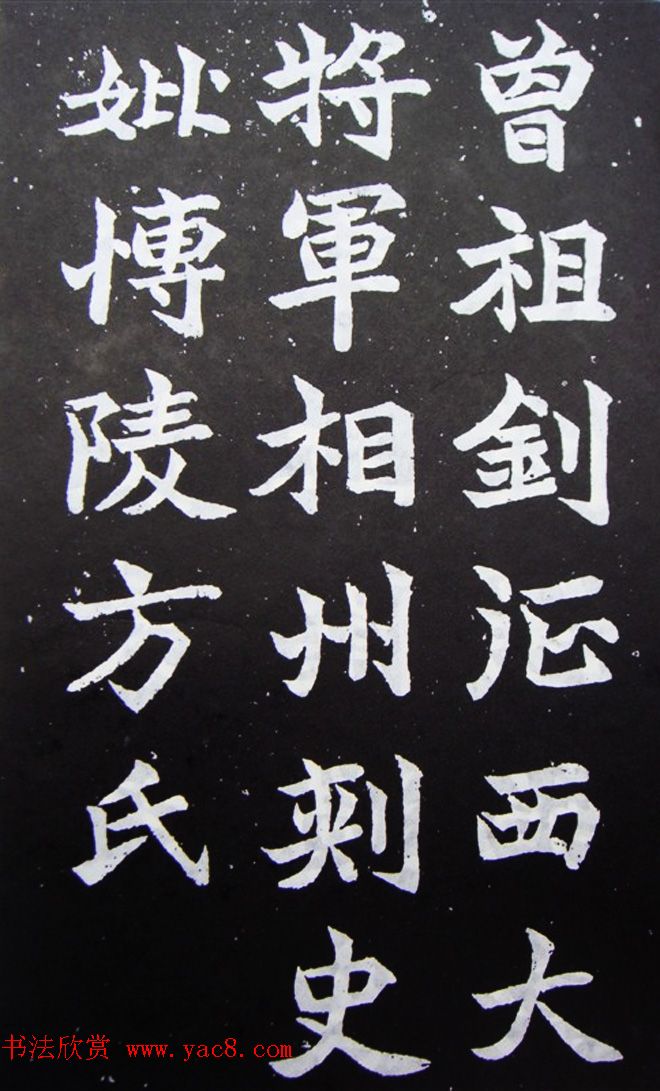 曾祖釗征西大
將軍相州刺史
妣博陵方氏
书法欣赏 www.yac8.com